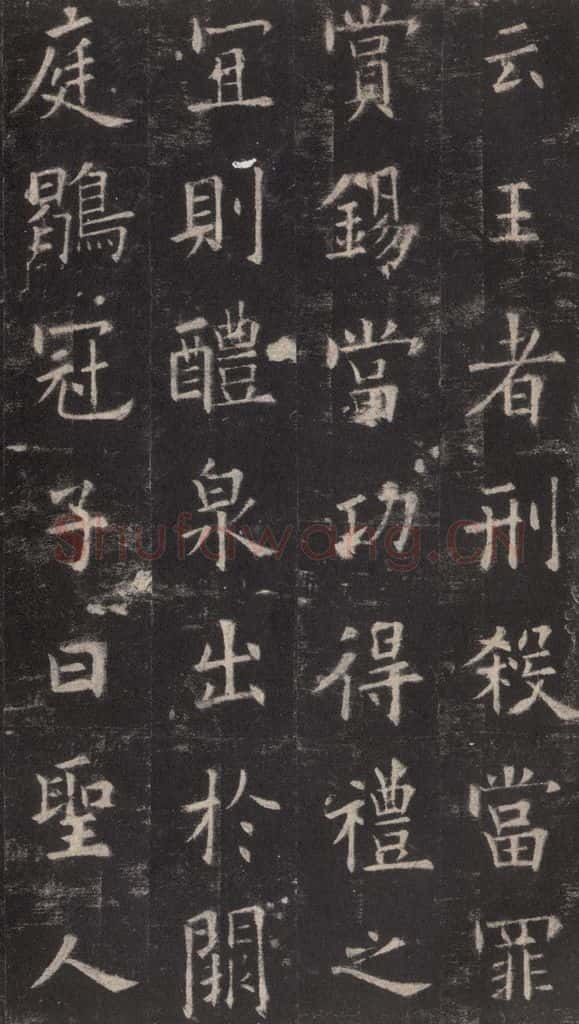 云王者刑殺當罪
賞錫當功得禮之
宜則醴泉出於闕
庭鶡冠子曰聖人
Shufawang.CN